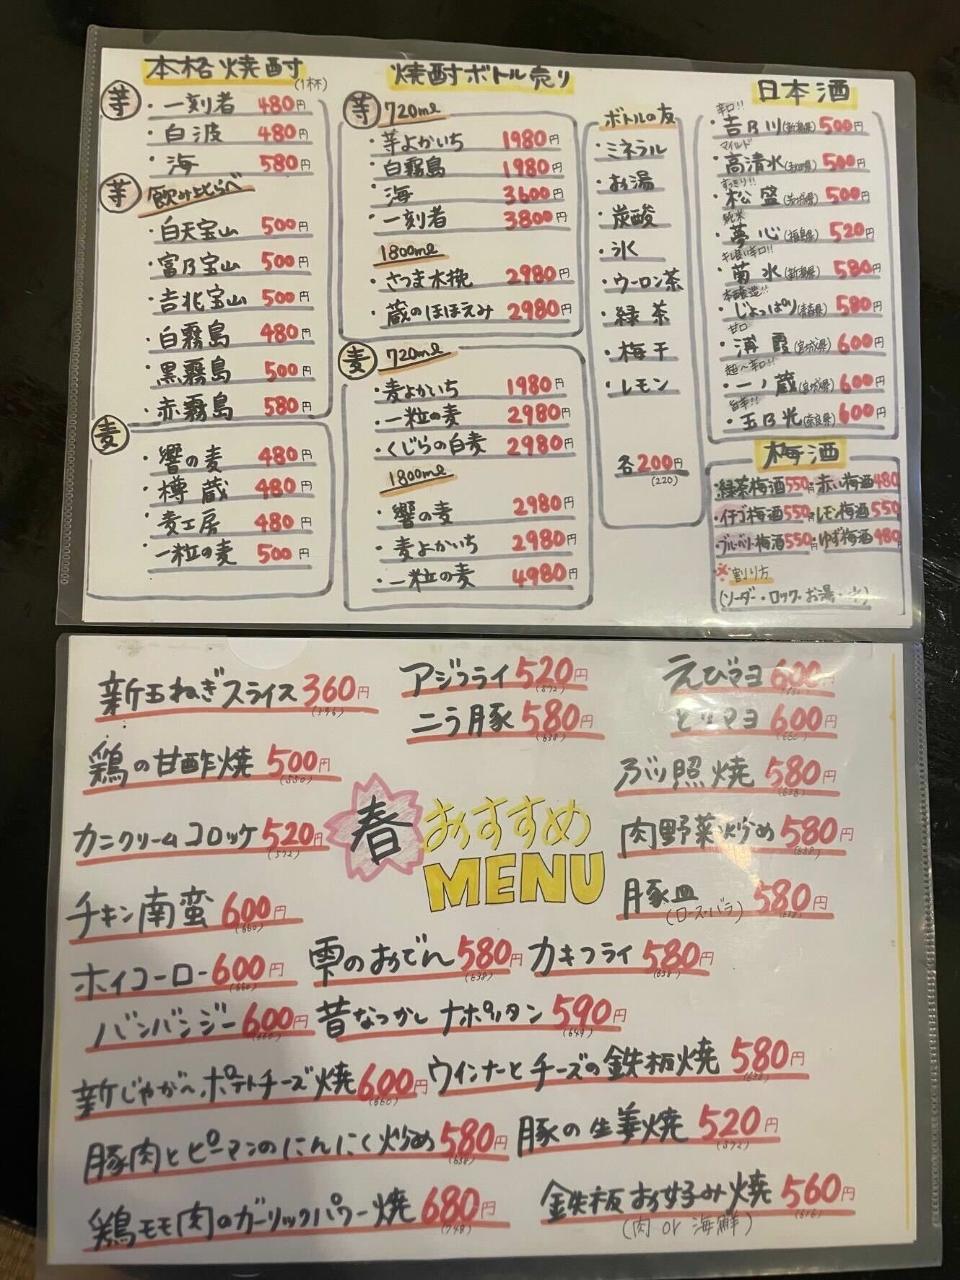 本格焼酎
(1杯)
芋
・一刻者 480円
・白波 480円
・海 580円
芋 飲み比らべ
・白天宝山 500円
・富乃宝山 500円
・吉兆宝山 500円
・白霧島 480円
・黒霧島 500円
・赤霧島 580円
麦
・響の麦 480円
・樽蔵 480円
・麦工房 480円
・一粒の麦 500円
焼酎ボトル売り
芋 720ml
・芋よかいち 1980円
・白霧島 1980円
・海 3600円
・一刻者 3800円
1800ml
・さつま木挽 2980円
・蔵のほほえみ 2980円
麦 720ml
・麦よかいち 1980円
・一粒の麦 2980円
・くじらの白麦 2980円
1800ml
・響の麦 2980円
・麦よかいち 2980円
・一粒の麦 4980円
ボトルの友
・ミネラル
・お湯
・炭酸
・氷
・ウーロン茶
・緑茶
・梅干
・レモン
各200円
(220)
日本酒
辛口!!
・吉乃川(新潟県) 500円
マイルド
・高清水(秋田県) 500円
すっきり!!
・松盛 500円
純米
・夢心(福島県) 520円
キレ良い辛口!!
・菊水(新潟県) 580円
本醸造!!
・じょっぱり(青森県) 580円
甘口
・浦霞(宮城県) 600円
超〜辛口!!
・一ノ蔵(宮城県) 600円
旨辛!!
・玉乃光(奈良県) 600円
梅酒
・緑茶梅酒550円 ・赤い梅酒480
・イチゴ梅酒550円 ・レモン梅酒550
・ブルーベリー梅酒550円 ・ゆず梅酒480円
※割り方
(ソーダ・ロック・お湯・水)
新玉ねぎスライス 360円
(396)
アジフライ 520円
(572)
ニラ豚 580円
(638)
えびマヨ 600円
とりマヨ 600円
(660)
鶏の甘酢焼 500円
(550)
ぶり照焼 580円
(638)
カニクリームコロッケ 520円
(572)
春 おすすめ
MENU
肉野菜炒め 580円
(638)
チキン南蛮 600円
(660)
豚皿 580円
(ロース・バラ)
ホイコーロー 600円
(660)
雫のおでん 580円
(638)
カキフライ 580円
(638)
バンバンジー 600円
昔なつかしナポリタン 590円
(649)
新じゃが〜ポテトチーズ焼 600円
(660)
ウインナーとチーズの鉄板焼 580円
(638)
豚肉とピーマンのにんにく炒め 580円
(638)
豚の生姜焼 520円
(572)
鶏モモ肉のガーリックパワー焼 680円
(748)
鉄板お好み焼 560円
(肉 or 海鮮)
(616)